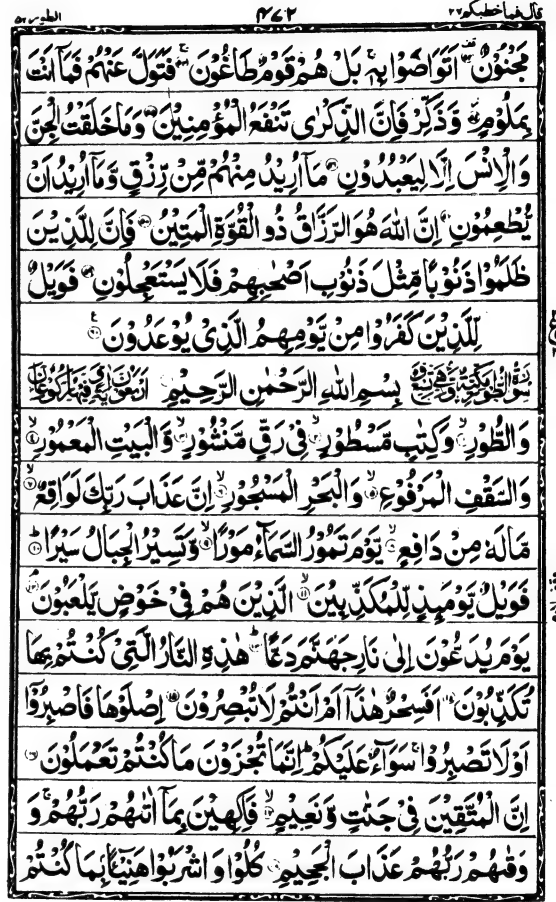 قال فما خطبكم ٢٧ ٤٧٢ الطور ٥٢
مَجْنُوْنٌ ۚ‏﴿۵۲﴾ اَتَوَاصَوْا بِهٖ ۚ بَلْ هُمْ قَوْمٌ طَاغُوْنَ ۚ‏﴿۵۳﴾ فَتَوَلَّ عَنْهُمْ فَمَاۤ اَنْتَ
بِمَلُوْمٍ ﴿۵۴﴾ وَّذَكِّرْ فَاِنَّ الذِّكْرٰى تَنْفَعُ الْمُؤْمِنِيْنَ ﴿۵۵﴾ وَمَا خَلَقْتُ الْجِنَّ
وَالْاِنْسَ اِلَّا لِيَعْبُدُوْنِ ﴿۵۶﴾ مَاۤ اُرِيْدُ مِنْهُمْ مِّنْ رِّزْقٍ وَّمَاۤ اُرِيْدُ اَنْ
يُّطْعِمُوْنِ ﴿۵۷﴾ اِنَّ اللّٰهَ هُوَ الرَّزَّاقُ ذُو الْقُوَّةِ الْمَتِيْنُ ﴿۵۸﴾ فَاِنَّ لِلَّذِيْنَ
ظَلَمُوْا ذَنُوْبًا مِّثْلَ ذَنُوْبِ اَصْحٰبِهِمْ فَلَا يَسْتَعْجِلُوْنِ ﴿۵۹﴾ فَوَيْلٌ
لِّلَّذِيْنَ كَفَرُوْا مِنْ يَّوْمِهِمُ الَّذِيْ يُوْعَدُوْنَ ﴿۶۰﴾
بِسْمِ اللّٰهِ الرَّحْمٰنِ الرَّحِيْمِ
وَالطُّوْرِ ﴿۱﴾ وَكِتٰبٍ مَّسْطُوْرٍ ﴿۲﴾ فِيْ رَقٍّ مَّنْشُوْرٍ ﴿۳﴾ وَّالْبَيْتِ الْمَعْمُوْرِ ﴿۴﴾
وَالسَّقْفِ الْمَرْفُوْعِ ﴿۵﴾ وَالْبَحْرِ الْمَسْجُوْرِ ﴿۶﴾ اِنَّ عَذَابَ رَبِّكَ لَوَاقِعٌ ﴿۷﴾
مَّا لَهٗ مِنْ دَافِعٍ ﴿۸﴾ يَّوْمَ تَمُوْرُ السَّمَآءُ مَوْرًا ﴿۹﴾ وَّتَسِيْرُ الْجِبَالُ سَيْرًا ﴿۱۰﴾
فَوَيْلٌ يَّوْمَئِذٍ لِّلْمُكَذِّبِيْنَ ﴿۱۱﴾ الَّذِيْنَ هُمْ فِيْ خَوْضٍ يَّلْعَبُوْنَ ﴿۱۲﴾
يَوْمَ يُدَعُّوْنَ اِلٰى نَارِ جَهَنَّمَ دَعًّا ﴿۱۳﴾ هٰذِهِ النَّارُ الَّتِيْ كُنْتُمْ بِهَا
تُكَذِّبُوْنَ ﴿۱۴﴾ اَفَسِحْرٌ هٰذَاۤ اَمْ اَنْتُمْ لَا تُبْصِرُوْنَ ﴿۱۵﴾ اِصْلَوْهَا فَاصْبِرُوْۤا
اَوْ لَا تَصْبِرُوْا ۚ سَوَآءٌ عَلَيْكُمْ ؕ اِنَّمَا تُجْزَوْنَ مَا كُنْتُمْ تَعْمَلُوْنَ ﴿۱۶﴾
اِنَّ الْمُتَّقِيْنَ فِيْ جَنّٰتٍ وَّنَعِيْمٍ ﴿۱۷﴾ فَاكِهِيْنَ بِمَاۤ اٰتٰىهُمْ رَبُّهُمْ ۚ وَ
وَقٰىهُمْ رَبُّهُمْ عَذَابَ الْجَحِيْمِ ﴿۱۸﴾ كُلُوْا وَاشْرَبُوْا هَنِيْٓئًۢا بِمَا كُنْتُمْ